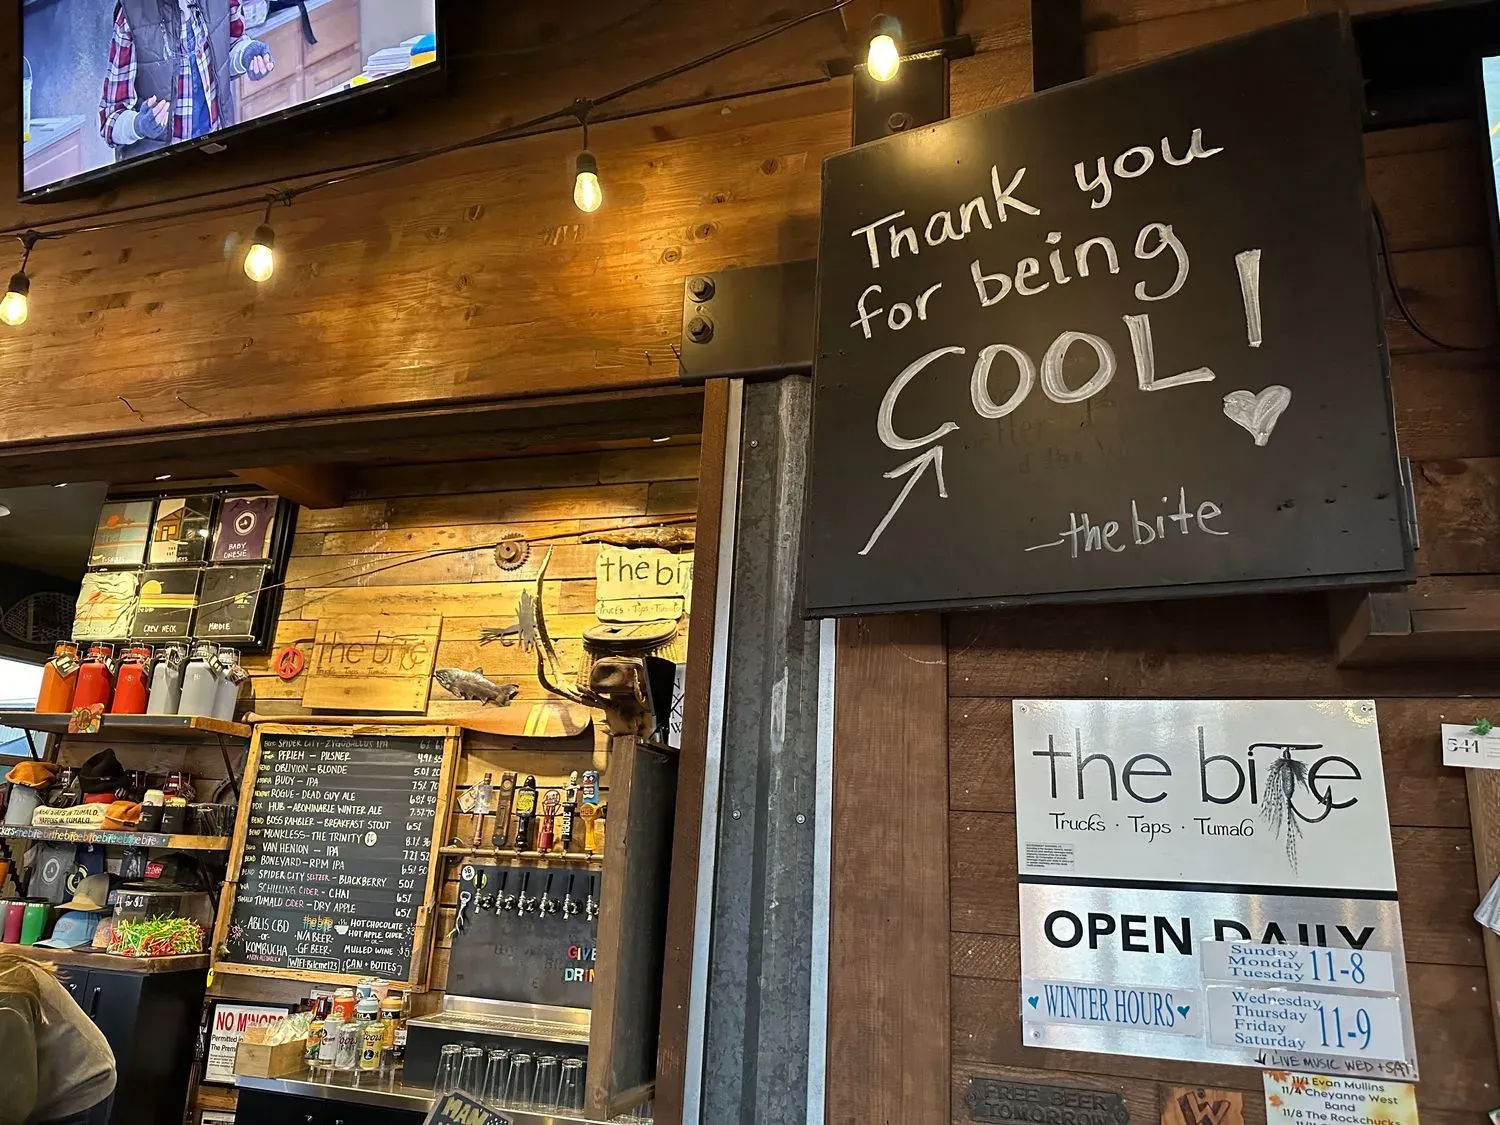 Thank you
for being
COOL!
— the bite
the bite
Trucks · Taps · Tumalo
OPEN DAILY
Sunday
Monday
Tuesday
11-8
WINTER HOURS
Wednesday
Thursday
Friday
Saturday
11-9
LIVE MUSIC WED + SAT!
11/1 Evan Mullins
11/4 Cheyanne West
Band
11/8 The Rockchucks
FREE BEER
TOMORROW
541
BABY
ONESIE
CREW NECK
HOODIE
the bi
Trucks · Taps · Tumalo
the bite
Trucks Taps Tumalo
SPIDER CITY - ZYGOBALLUS IPA
PFRIEM - PILSNER
BEND OBLIVION - BLONDE
BUOY - IPA
ROGUE - DEAD GUY ALE
PDX HUB - ABOMINABLE WINTER ALE
BEND BOSS RAMBLER - BREAKFAST STOUT
BEND MONKLESS - THE TRINITY
VAN HENION - IPA
BEND BONEYARD - RPM IPA
BEND SPIDER CITY SELTZER - BLACKBERRY
WA SCHILLING CIDER - CHAI
TUMALO CIDER - DRY APPLE
ABLIS CBD
-or-
KOMBUCHA
*NON ALCOHOLIC
the bite
N/A BEER
GF BEER
HOT CHOCOLATE
HOT APPLE CIDER
-OR-
MULLED WINE
CAN + BOTTES
GIVE
DRIN
NO MINORS
Permitted in
The Prem
MAN